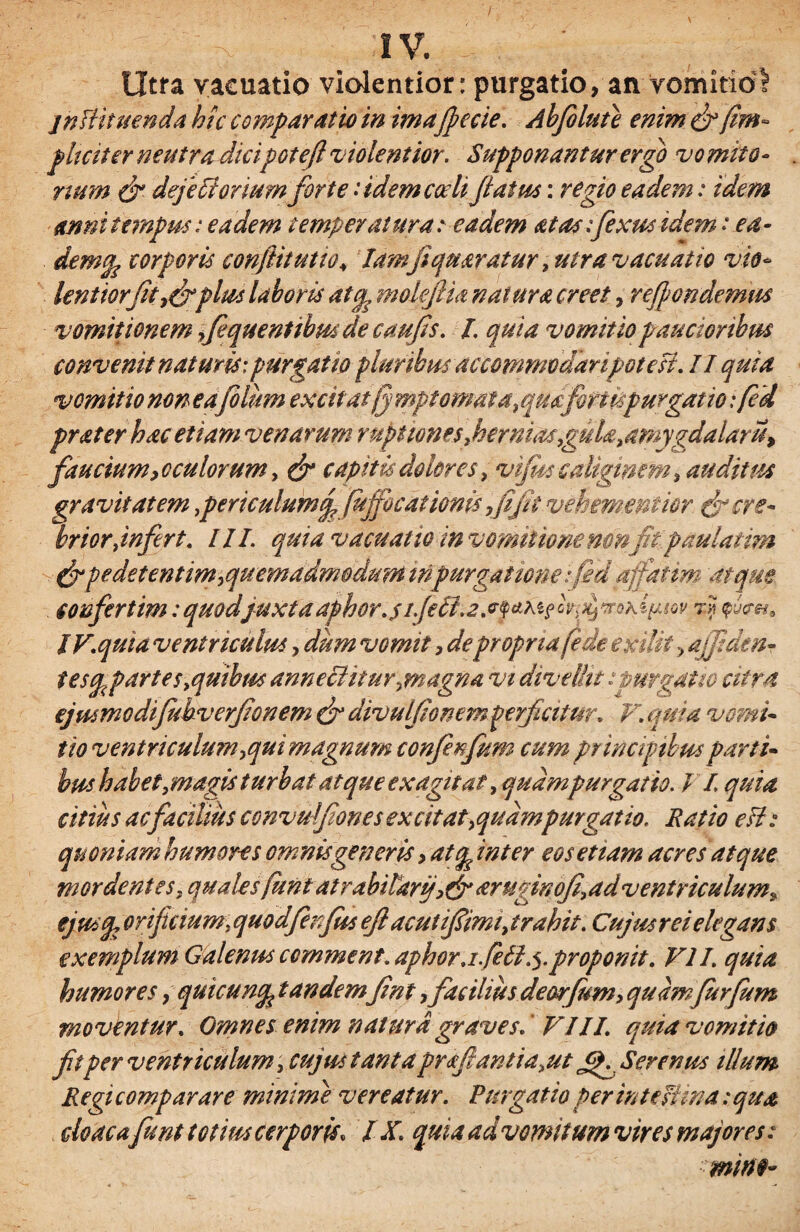 IV.
Utra vacuatio violentior: purgatio, an vomitio?
jnstituenda hîc comparatio in ima specie. Absolutè enim & sim-
pliciter neutra dici potest violentior. Supponantur ergò vomito-
rium & dejectorium fortè: idem cœli status: regio eadem: idem
anni tempus: eadem temperatura: eadem ætas: sexus idem: ea-
demq; corporis constitutio. Iam si quæratur, utra vacuatio vio-
lentior sit, & plus laboris atq; molestiæ naturæ creet, respondemus
vomitionem, sequentibus de causis. I. quia vomitio paucioribus
convenit naturis: purgatio pluribus accommodari potest. II quia
vomitio non ea solùm excitat symptomata, quæ fortis purgatio: sed
præter hæc etiam venarum ruptiones, hernias, gulæ, amygdalarū,
faucium, oculorum, & capitis dolores, visus caliginem, auditus
gravitatem, periculumq; suffocationis, si sit vehementior & cre-
brior, infert. III. quia vacuatio in vomitione non fit paulatim
& pedetentim, quemadmodum in purgatione: sed affatim atque
confertim: quod juxta aphor. 51. sect. 2. σφαλερὸν, καὶ πολέμιον τῇ φύσει.
IV. quia ventriculus, dum vomit, de propria sede exilit, assiden-
tesq; partes, quibus annectitur, magna vi divellit: purgatio citra
ejusmodi subversionem & divulsionem perficitur. V. quia vomi-
tio ventriculum, qui magnum consensum cum principibus parti-
bus habet, magis turbat atque exagitat, quàm purgatio. VI. quia
citiùs ac faciliùs convulsiones excitat, quàm purgatio. Ratio est:
quoniam humores omnis generis, atq; inter eos etiam acres atque
mordentes, quales sunt atrabilarij, & æruginosi, ad ventriculum,
ejusq; orificium, quod sensus est acutissimi, trahit. Cujus rei elegans
exemplum Galenus comment. aphor. 1. sect. 5. proponit. VII. quia
humores, quicunq; tandem sint, faciliùs deorsum, quàm sursum
moventur. Omnes enim naturâ graves. VIII. quia vomitio
fit per ventriculum, cujus tanta præstantia, ut Q. Serenus illum
Regi comparare minimè vereatur. Purgatio per intestina: quæ
cloaca sunt totius corporis. IX. quia ad vomitum vires majores:
mino-